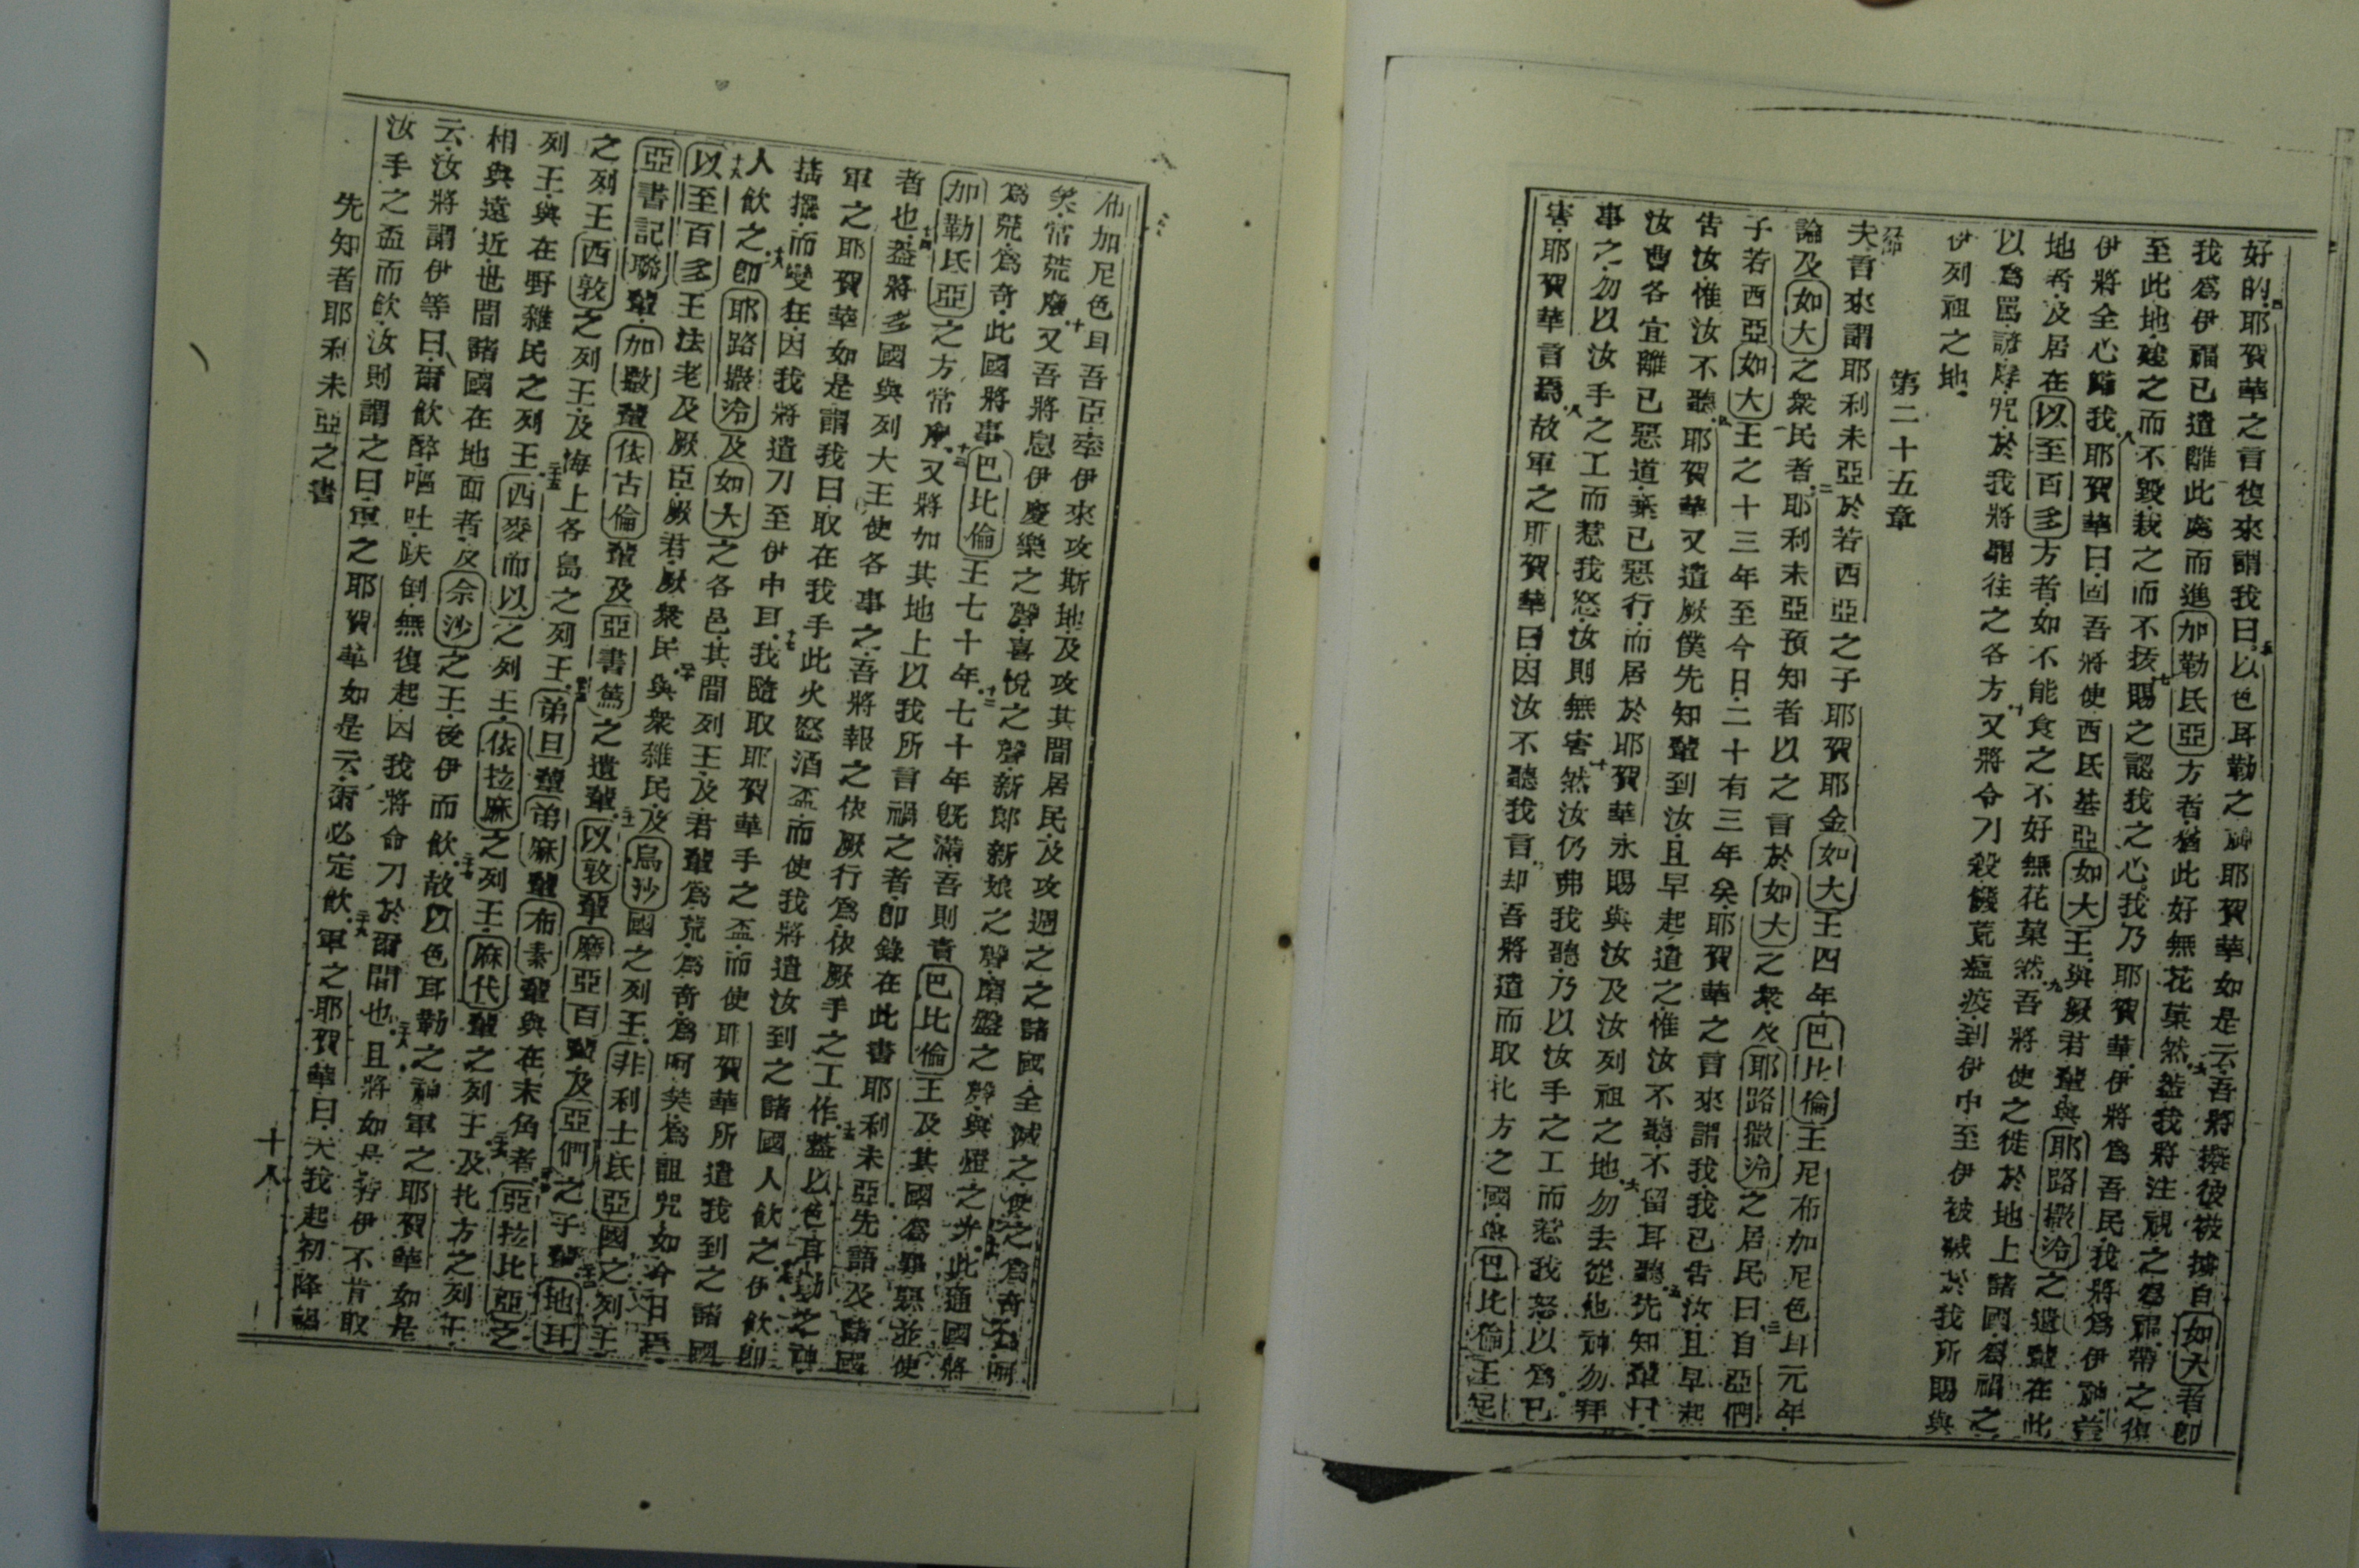 好的耶賀華之言復來謂我曰以色耳勒之神耶賀華如是云吾將擬彼被擄自如大者即
我為伊福已遣離此處而進加勒氏亞方者猶此好無花菓然蓋我將注視之為福帶之復
至此地建之而不毀栽之而不拔賜之認我之心我乃耶賀華伊將為吾民我將為伊神蓋
伊將全心歸我耶賀華曰固吾將使西氐基亞如大王與厥君輩與耶路撒泠之遺輩在此
地者及居在以至百多方者如不能食之不好無花菓然吾將使之徙於地上諸國為禍之
以為罵諺辱咒於我將驅往之各方又將令刀殺饑荒瘟疫到伊中至伊被滅於我所賜與
伊列祖之地
第二十五章
夫言來謂耶利未亞於若西亞之子耶賀耶金如大王四年巴比倫王尼布加尼色耳元年
論及如大之衆民者耶利未亞預知者以之言於如大之衆及耶路撒泠之居民曰自亞們
子若西亞如大王之十三年至今日二十有三年矣耶賀華之言來謂我我已告汝且早起
告汝惟汝不聽耶賀華又遣厥僕先知輩到汝且早起遣之惟汝不聽不留耳聽先知輩曰
汝曹各宜離已惡道棄已惡行而居於耶賀華永賜與汝及汝列祖之地勿去從他神勿拜
事之勿以汝手之工而惹我怒汝則無害然汝仍弗我聽乃以汝手之工而惹我怒以為已
害耶賀華言焉故軍之耶賀華曰因汝不聽我言却吾將遣而取北方之國與巴比倫王尼
布加尼色耳吾臣率伊來攻斯地及攻其間居民及攻週之之諸國全滅之使之為奇為呵
矣常荒廢又吾將息伊慶樂之聲喜悅之聲新郎新娘之聲磨盤之聲與燈之光此通國將
為荒為奇此國將事巴比倫王七十年七十年既滿吾則責巴比倫王及其國為舉惡並使
加勒氏亞之方常廢又將加其地上以我所言禍之者即錄在此書耶利未亞先語及諸國
者也蓋將多國與列大王使各事之吾將報之依厥行為依厥手之工作蓋以色耳勒之神
軍之耶賀華如是謂我曰取在我手此火怒酒盃而使我將遣汝到之諸國人飲之伊飲即
搖擺而變狂因我將遣刀至伊中耳我隨取耶賀華手之盃而使耶賀華所遣我到之諸國
人飲之即耶路撒泠及如大之各邑其間列王及君輩為荒為奇為呵矣為詛咒如今日焉
以至百多王法老及厥臣厥君厥衆民與衆雜民及烏沙國之列王非利士氐亞國之列王
亞書記聯輩加撒輩依古倫輩及亞書篤之遺輩以敦輩磨亞百輩及亞們之子輩地耳
之列王西敦之列王及海上各島之列王弟旦輩弟麻輩布素輩與在末角者亞拉比亞之
列王與在野雜民之列王西麥而以之列王依拉麻之列王麻代輩之列王及北方之列王
相與遠近世間諸國在地面者及佘沙之王後伊而飲故以色耳勒之神軍之耶賀華如是
云汝將謂伊等曰爾飲醉嘔吐跌倒無復起因我將命刀於爾間也且將如是若伊不肯取
汝手之盃而飲汝則謂之曰軍之耶賀華如是云爾必定飲軍之耶賀華曰夫我起初降禍
先知者耶利未亞之書
十八